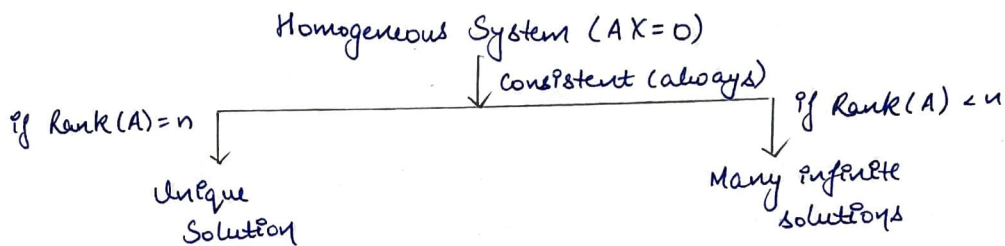 Homogeneous System (AX=0)
Consistent (always)
if Rank(A)=n
if Rank(A) < n
Unique
Solution
Many infinite
solutions